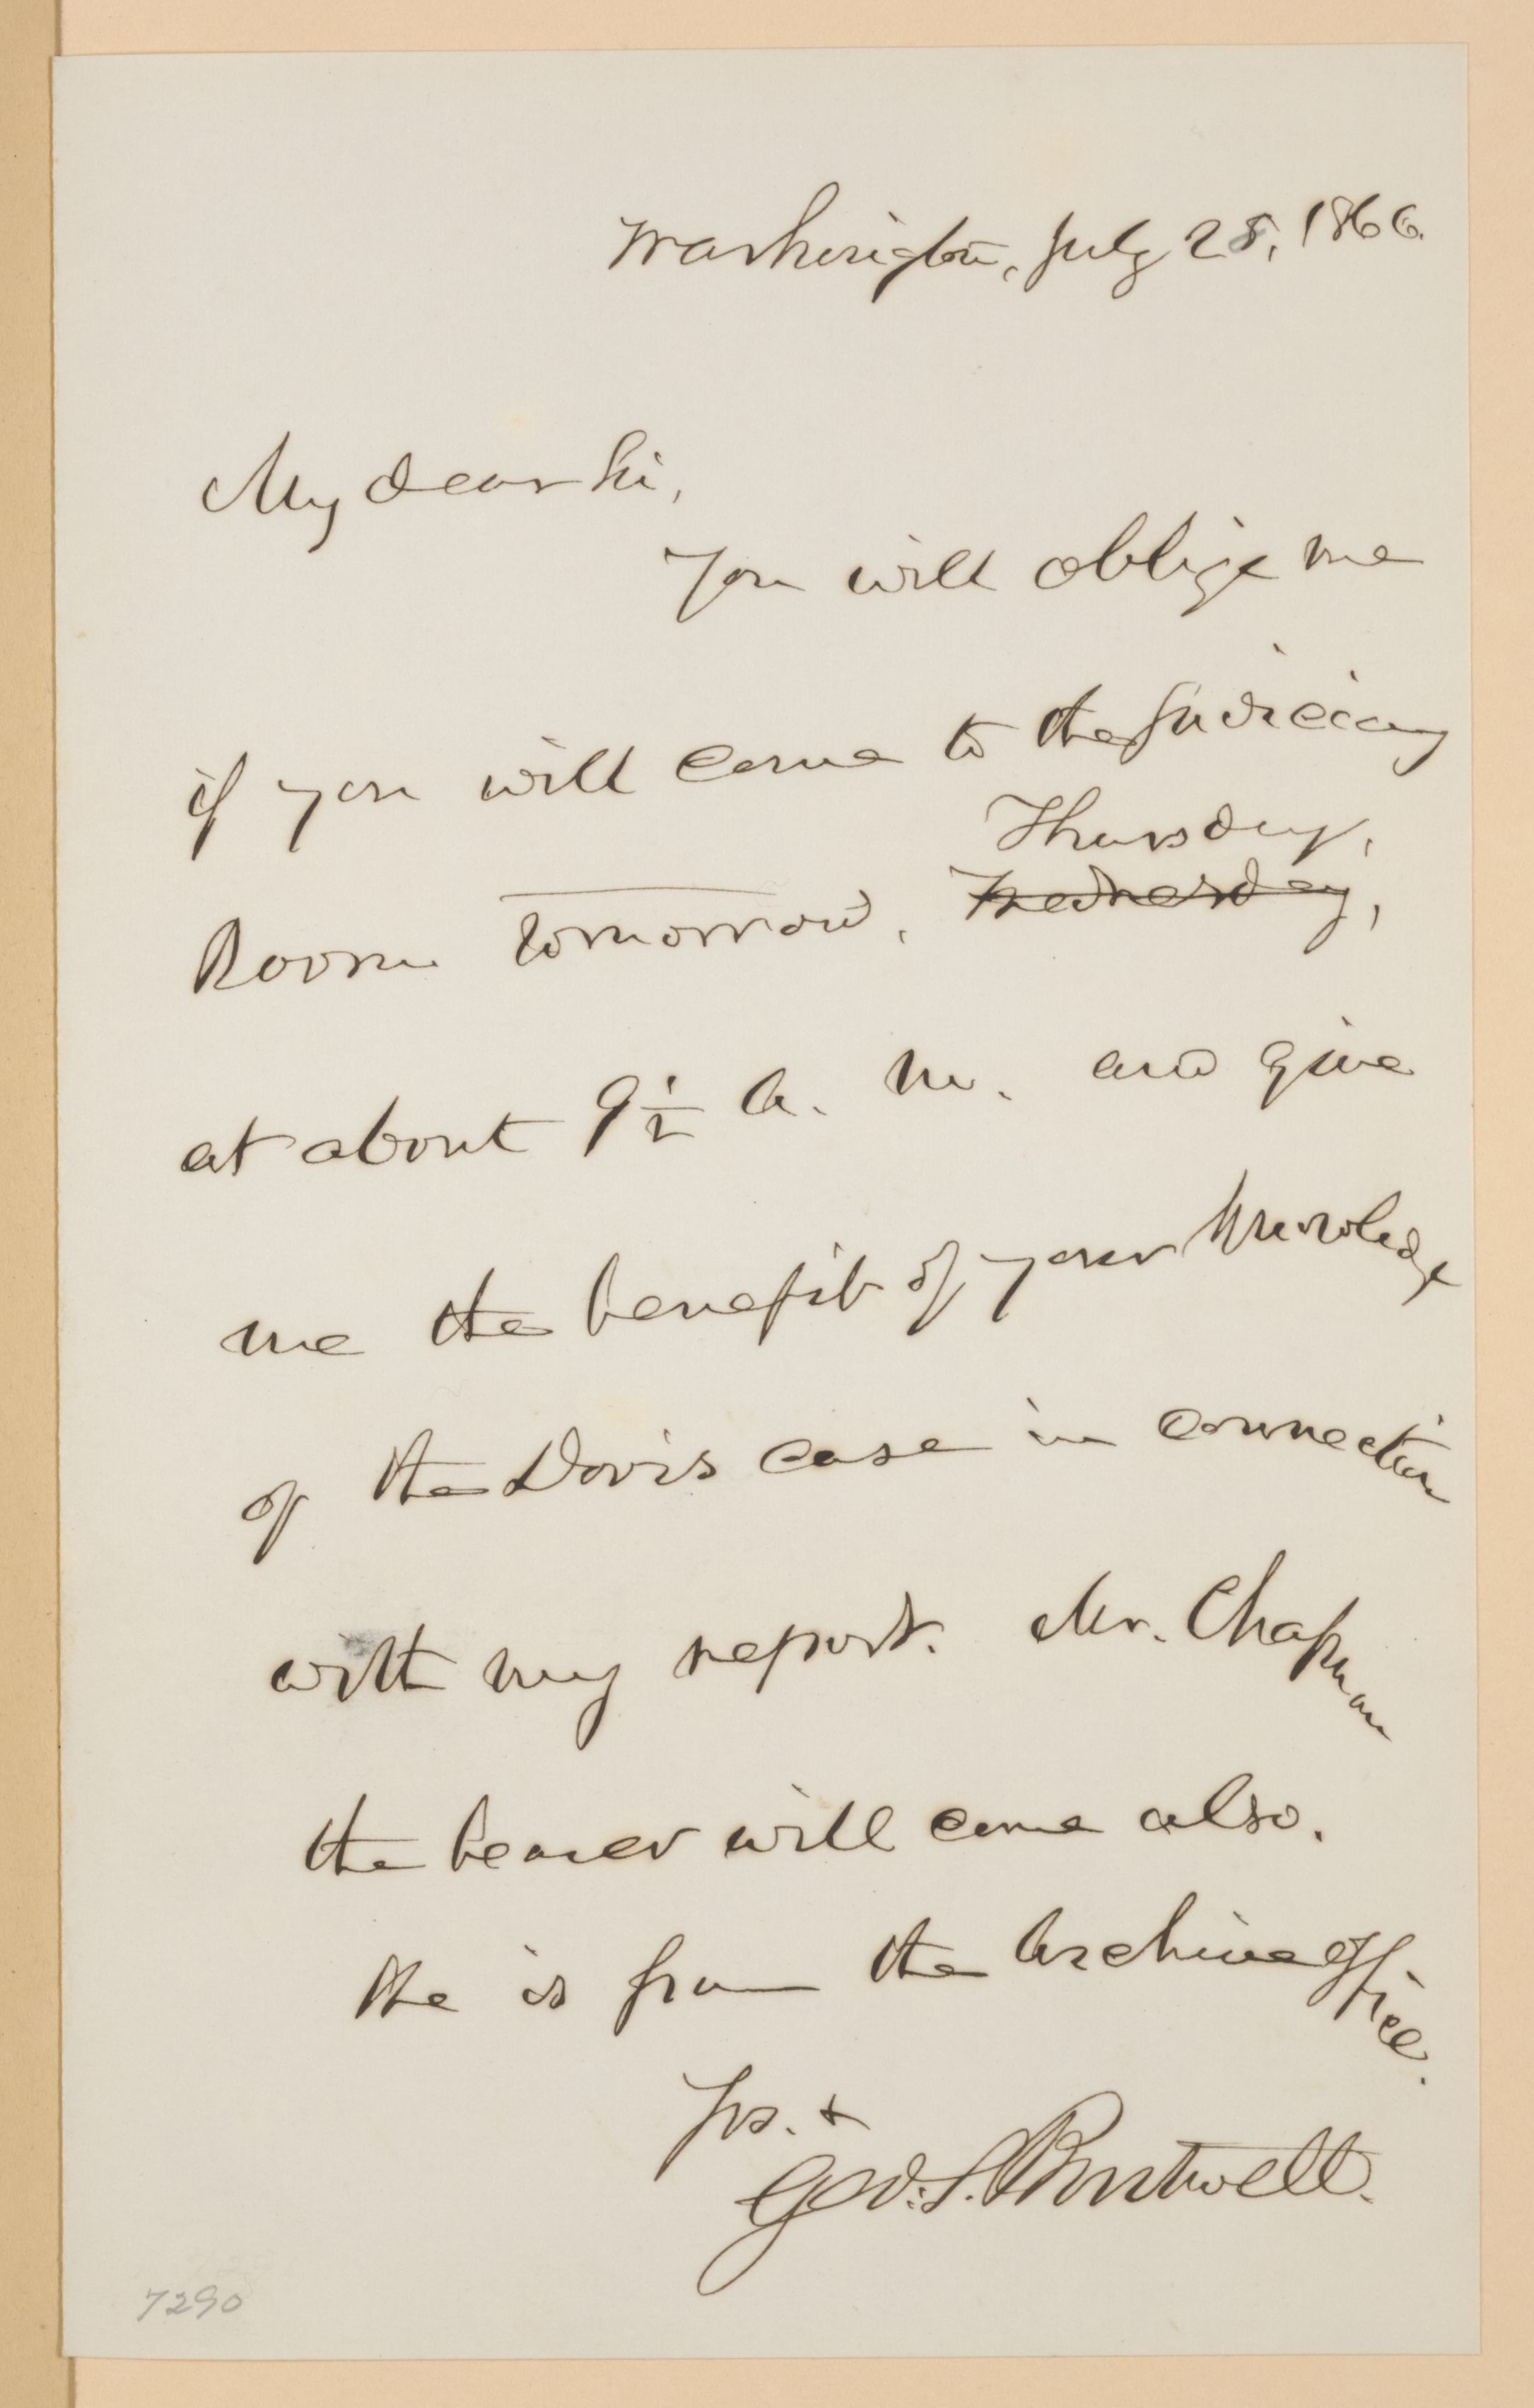 Washington, July 25, 1866.
My dear Sir,
You will oblige me
if you will come to the Judiciary
Thursday,
Room tomorrow, Wednesday,
at about 9½ A. M. and give
me the benefit of your knowledge
of the Davis case in connection
with my report. Mr. Chapman
the bearer will come also.
He is from the Archive Office.
Yrs. +
Geo. S. Boutwell.
7290